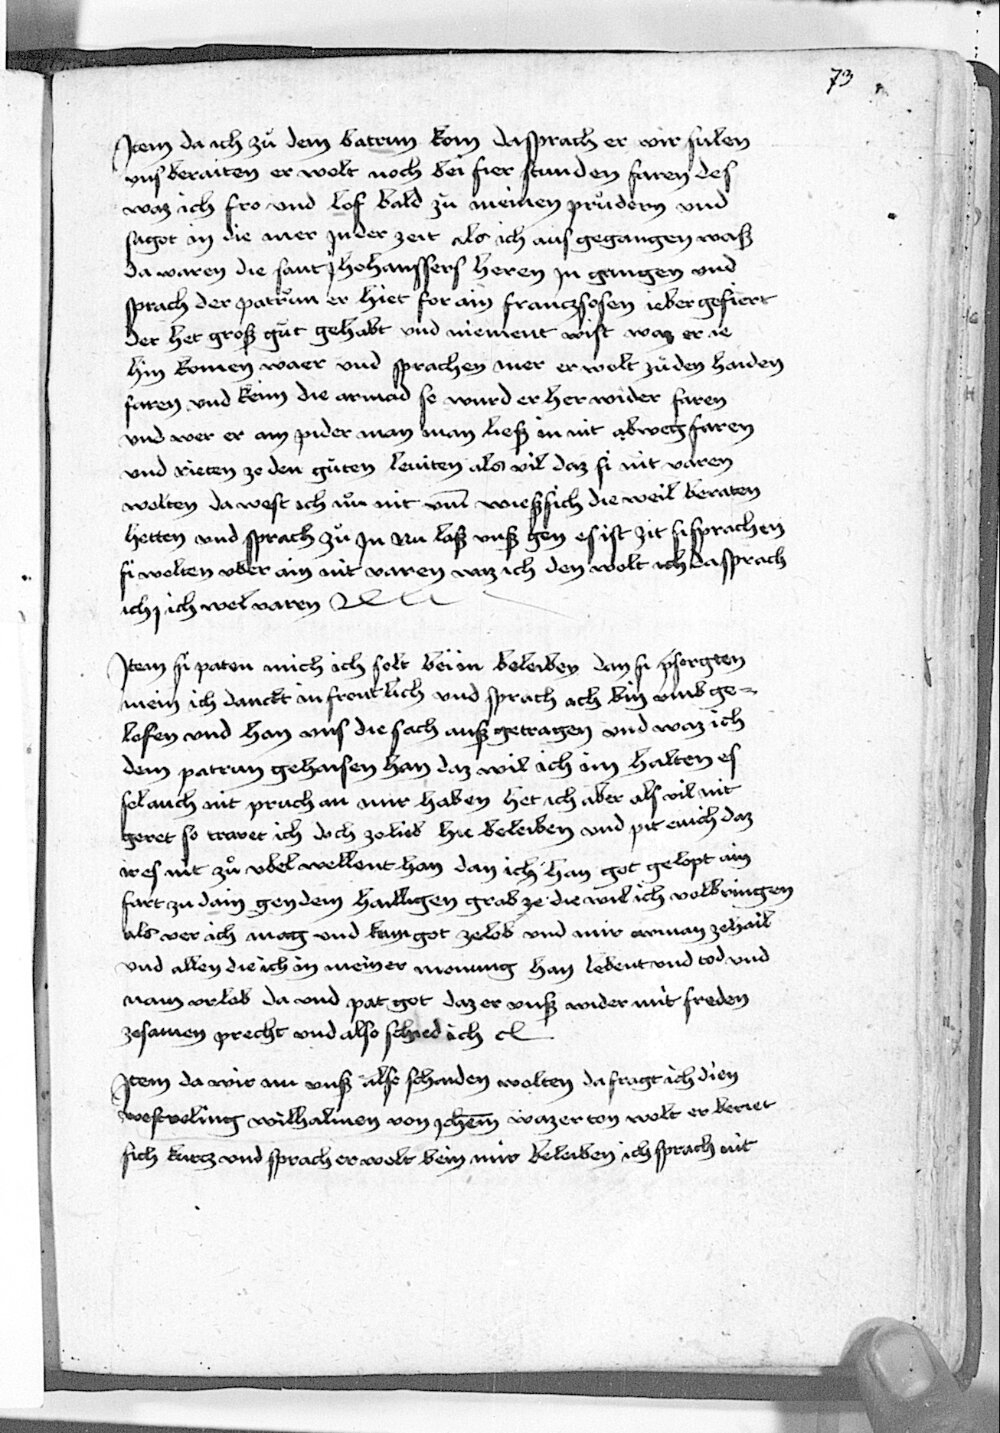 73
Item da ich zů dem batrun kom da sprach er wir sulen
uns beraiten er welt noch bei fier stunden faren des
waz ich fro und lof bald zů meinen průdern und
sagot in die mer In der zeit als ich aus gegangen waß
da waren die sant Johanssers heren In gangen und
sprach der patrůn er hiet for ain franczsosen ieber gefiert
der het groß gůt gehabt und niement wist waz er ie
hin komen waer und sprachen mer er welt zů den haiden
faren und kem die armad so wurd er her wider faren
und wer er ain pider man man ließ in nit abweg faren
und rieten ze den gůten leuiten als vil daz si nit varen
wolten da west ich nů nit um wieß sich die weil beraten
hetten und sprach zů In Nu laß unß gen es ist zit si sprachen
si welten uber ain nit varen waz ich den welt ich da sprach
ich ich wel varen
Item si paten mich ich solt bei in beleiben dan si psorgten
mein ich danckt in freutlich und sprach ach bin umb ge-
lofen und han uns die sach auß getragen und waz ich
dem patrun gehaisen han daz wil ich im halten es
sel auch nit pruch an mir haben het ich aber als vil nit
geret so trawet ich doch ze lieb hie beleiben und pit euich daz
ir es nit zů ubel wellent han dan ich han got gelopt ain
fart zu dain gen dem hailligen grab ze die wil ich volbringen
als ver ich mag und kan got ze lob und mir arman ze hail
und allen die ich in meiner monung han lebent und tod und
nam urlob da und pat got daz er unß wider mit freden
ze samen precht und also schied ich
Item da wir nu unß also schaiden wolten da fragt ich dien
westveling wilhalmen von waz er ton welt er beriet
sich kurcz und sprach er welt bein mir beleiben ich sprach nit